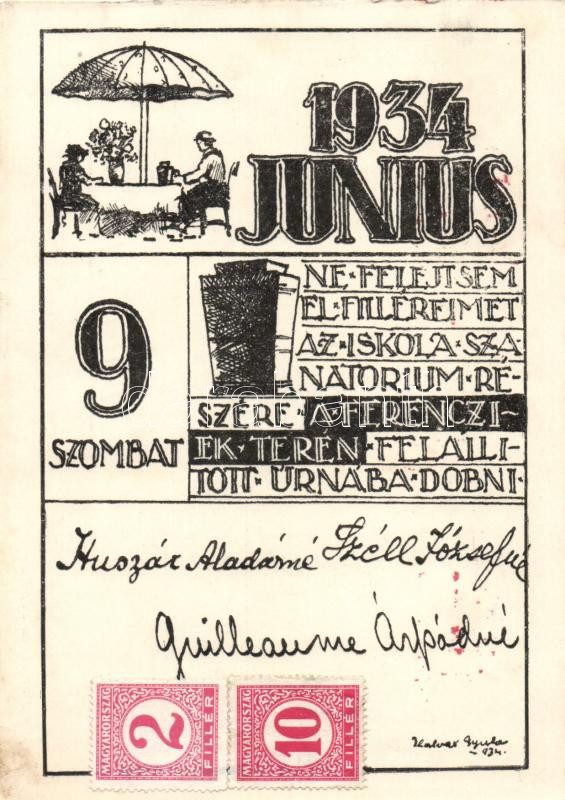 1934
JUNIUS
9
SZOMBAT
NE · FELEJTSEM
EL · FILLÉREIMET
AZ · ISKOLA · SZA
NATORIUM · RÉ-
SZÉRE · A · FERENCZI-
EK · TERÉN · FELALLI-
TOTT · URNABA · DOBNI ·
Huszár Aladárné Széll Józsefné
Guilleaume Árpádné
MAGYARORSZÁG
2
FILLÉR
MAGYARORSZÁG
10
FILLÉR
Gyula
934.